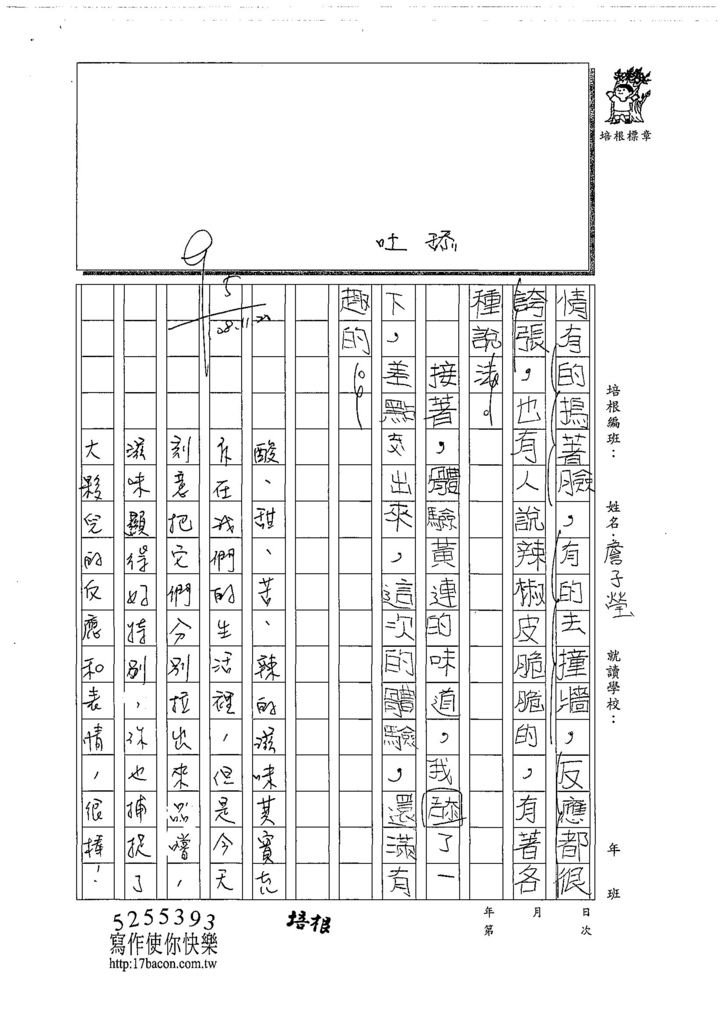 培根標章
吐 舔
95
08.11.22
培根編班：
姓名：詹子瑩
就讀學校：
年 班
情有的摀著臉，有的去撞牆，反應都很
誇張，也有人說辣椒皮脆脆的，有著各
種說法。
接著，體驗黃連的味道，我舔了一
下，差點吐出來，這次的體驗，還滿有
趣的。
酸、甜、苦、辣的滋味其實充
斥在我們的生活裡，但是今天
刻意把它們分別拉出來品嚐，
滋味顯得好特別，你也捕捉了
大夥兒的反應和表情，很棒！
日 月 年
次 第
培根
5255393
寫作使你快樂
http:17bacon.com.tw